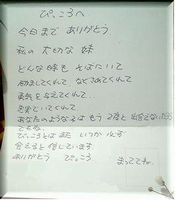 ぴ、ころへ
今日まで ありがとう
私の 大切な 妹
どんな時も そばにいて
励ましてくれて なぐさめてくれて
勇気を与えてくれて…
愛してくれて
あなたのような子は もう2度と出会えないだろう
でもね
ぴ、ころとは また いつか 必ず
会えると信じています
ありがとう ぴ、ころ
まっててね